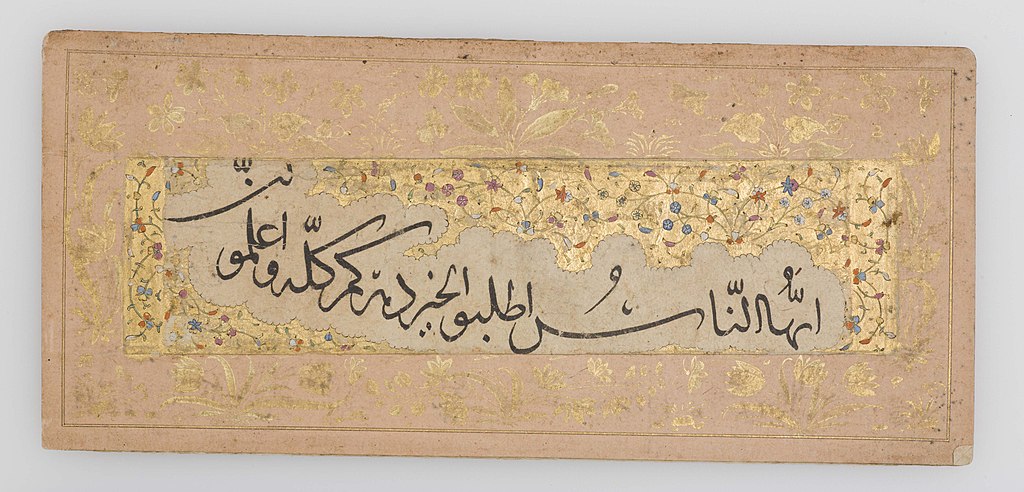 ايُّهَا النّاسُ اطلبوا الخير دهركم كلّه واعلموا